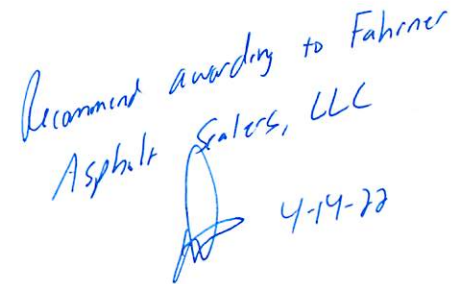 Recommend awarding to Fahrner
Asphalt Sealers, LLC
4-14-22